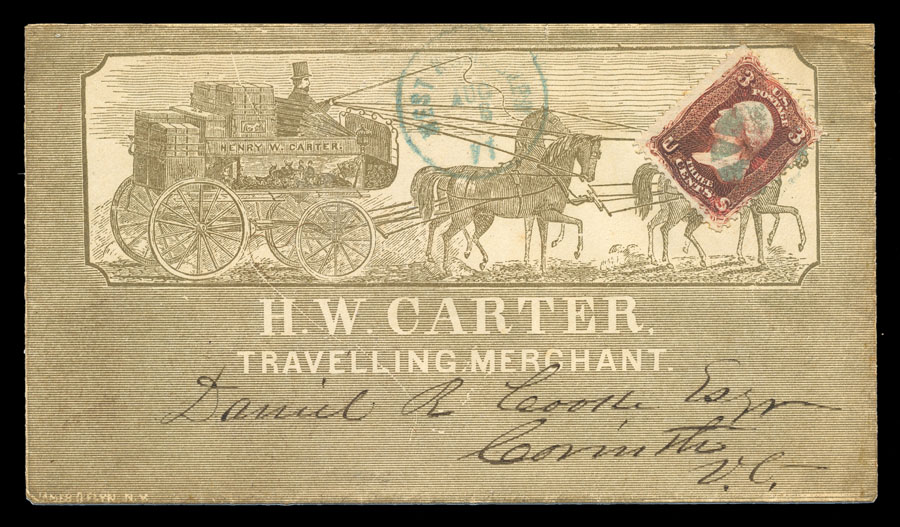 HENRY W. CARTER.
WEST
AUG
3
U.S.
POSTAGE
3
THREE
CENTS
U
S
H. W. CARTER,
TRAVELLING MERCHANT.
Daniel R Cooke Esqr
Corinth
V.t.
N.Y.